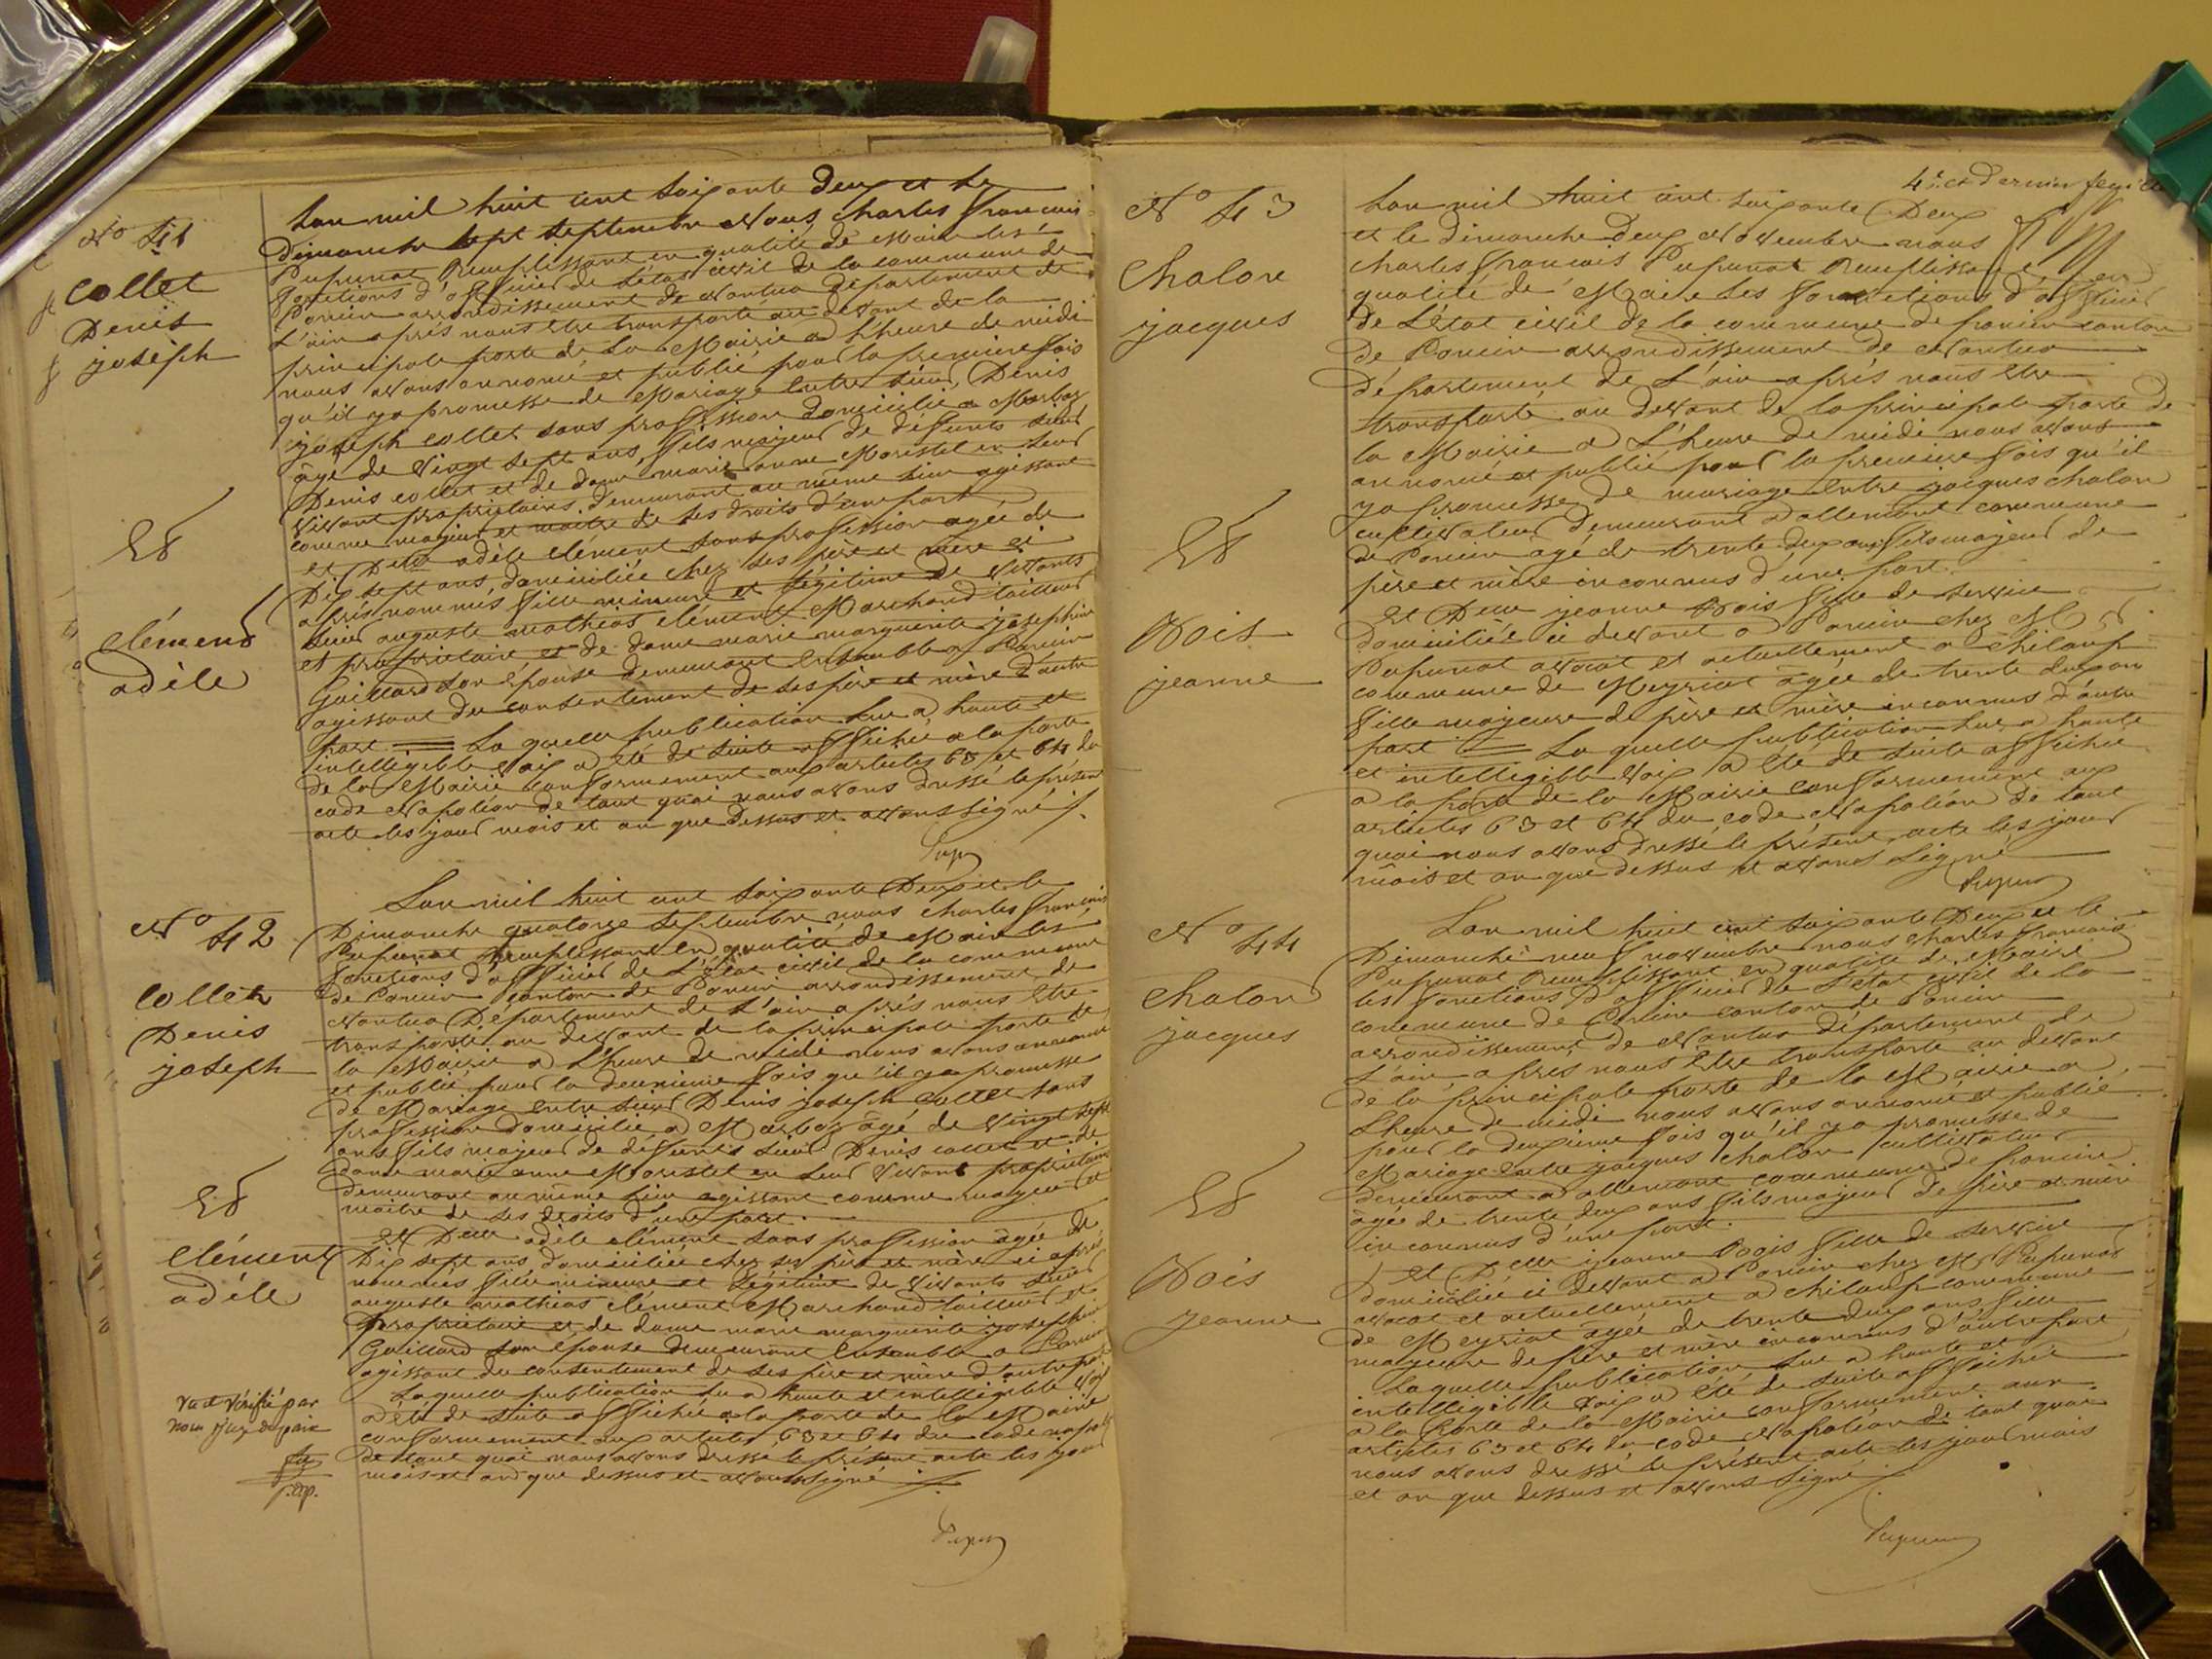 No 41
Collet
Denis
joseph
Et
Clément
adèle
L'an mil huit cent soixante deux et le
Dimanche sept septembre Nous Charles François
Pupunat Remplissant en qualité de Maire les
fonctions d'officier de l'état civil de la commune de
Poncin arrondissement de Nantua département de
L'ain après nous être transporté au devant de la
principale porte de La Mairie a L'heure de midi
nous avons annoncé et publié pour la première fois
qu'il ya promesse de Mariage Entre sieur Denis
joseph Collet sans profession domicilié a Marboz
âgé de Vingt sept ans, fils majeur de défunts sieur
Denis collet et de dame marie anne Moristel en leur
Vivant propriétaires demeurant au même lieu agissant
comme majeur et maitre de ses droits d'une part
et Delle adèle clément sans profession agée de
Dix sept ans domiciliée chez ses père et mère ci
après nommés fille mineure et légitime de vivants
sieur auguste mathias clément Marchand tailleur
et propriétaire et de dame marie marguerite josephine
Gaillard son épouse demeurant Ensemble a Poncin
agissant du consentement de ses père et mère d'autre
part == La quelle publication lue a haute et
intelligible Voix a été de suite affichée a la porte
de la Mairie conformément aux articles 63 et 64 du
code Napoléon de tout quoi nous avons dressé le présent
acte les jour mois et an que dessus et avons signé
No 42
Collet
Denis
joseph
Et
Clément
adèle
L'an mil huit cent soixante Deux et le
Dimanche quatorze septembre nous charles françois
Pupunat Remplissant en qualité de Maire les
fonctions d'officier de L'état civil de la commune
de Poncin canton de Poncin arrondissement de
Nantua Département de L'ain après nous être
transporté au devant de la principale porte de
la Mairie a L'heure de midi nous avons annoncé
et publié pour la deuxième fois qu'il ya promesse
de Mariage entre sieur Denis joseph Collet sans
profession domicilié a Marboz âgé de Vingt sept
ans fils majeur de défunts sieur Denis collet et de
dame marie anne Moristel en leur Vivant propriétaires
demeurant au même lieu agissant comme majeur et
maitre de ses droits d'une part.
et Delle adèle clément sans profession agée de
Dix sept ans domiciliée chez ses père et mère ci après
nommés fille mineure et légitime de vivants sieur
auguste mathias clément Marchand tailleur et
propriétaire et de dame marie marguerite josephine
Gaillard son épouse demeurant Ensemble a Poncin
agissant du consentement de ses père et mère d'autre part
Laquelle publication lu a haute et intelligible voix
a été de suite affichée a la porte de la Mairie
conformement aux articles 63 et 64 du code napoléon
De tout quoi nous avons dressé le présent acte les jour
mois et an que dessus et avons signé
Vu et Vérifié par
nous juge de paix
4e et Dernier feuillet
No 43
Chalon
jacques
Et
Vois
jeanne
L'an mil huit cent soixante Deux
et le dimanche deux Novembre nous
charles françois Pupunat Remplissant en
qualité de Maire Les fonctions d'officier
de L'état civil de la commune de Poncin canton
de Poncin arrondissement de Nantua
département de L'ain après nous être
transporté au devant de la principale porte de
la Mairie a L'heure de midi nous avons
annoncé et publié pour la première fois qu'il
ya promesse de mariage entre jacques chalon
cultivateur Demeurant a allement commune
de Poncin agé de trente deux ans fils majeur de
père et mère inconnus d'une part
et Delle jeanne Vois fille de service
domiciliée ci devant a Poncin chez M
Pupunat avocat et actuellement a chiloup
commune de Meyriat âgée de trente deux ans
fille majeure de père et mère inconnus d'autre
part == La quelle publication lue a haute
et intelligible Voix a été de suite affichée
a la porte de la Mairie Conformément aux
articles 63 et 64 du code Napoléon De tout
quoi nous avons dressé le présent acte les jour
mois et an que dessus et avons signé
No 44
Chalon
jacques
Et
Vois
jeanne
L'an mil huit cent soixante Deux et le
Dimanche neuf novembre nous Charles françois
Pupunat Remplissant en qualité de Maire
les fonctions d'officier de L'état civil de la
commune de Poncin canton de Poncin
arrondissement de Nantua département de
L'ain après nous être transporté au devant
de la principale porte de la Mairie a
L'heure de midi nous avons annoncé et publié
pour la deuxieme fois qu'il ya promesse de
Mariage entre jacques chalon cultivateur
demeurant a allement commune de Poncin
âgée de trente deux ans fils majeur de père et mère
inconnus d'une part.
et Delle jeanne Vois fille de service
domiciliée ci devant a Poncin chez M Pupunat
avocat et actuellement a chiloup commune
de Meyriat âgée de trente deux ans, fille
majeure de père et mère inconnus d'autre part
Laquelle publication lue a haute et
intelligible voix a été de suite affichée
a la Porte de la Mairie conformément aux
articles 63 et 64 du code Napoléon de tout quoi
nous avons dressé le présent acte les jour mois
et an que dessus et avons signé